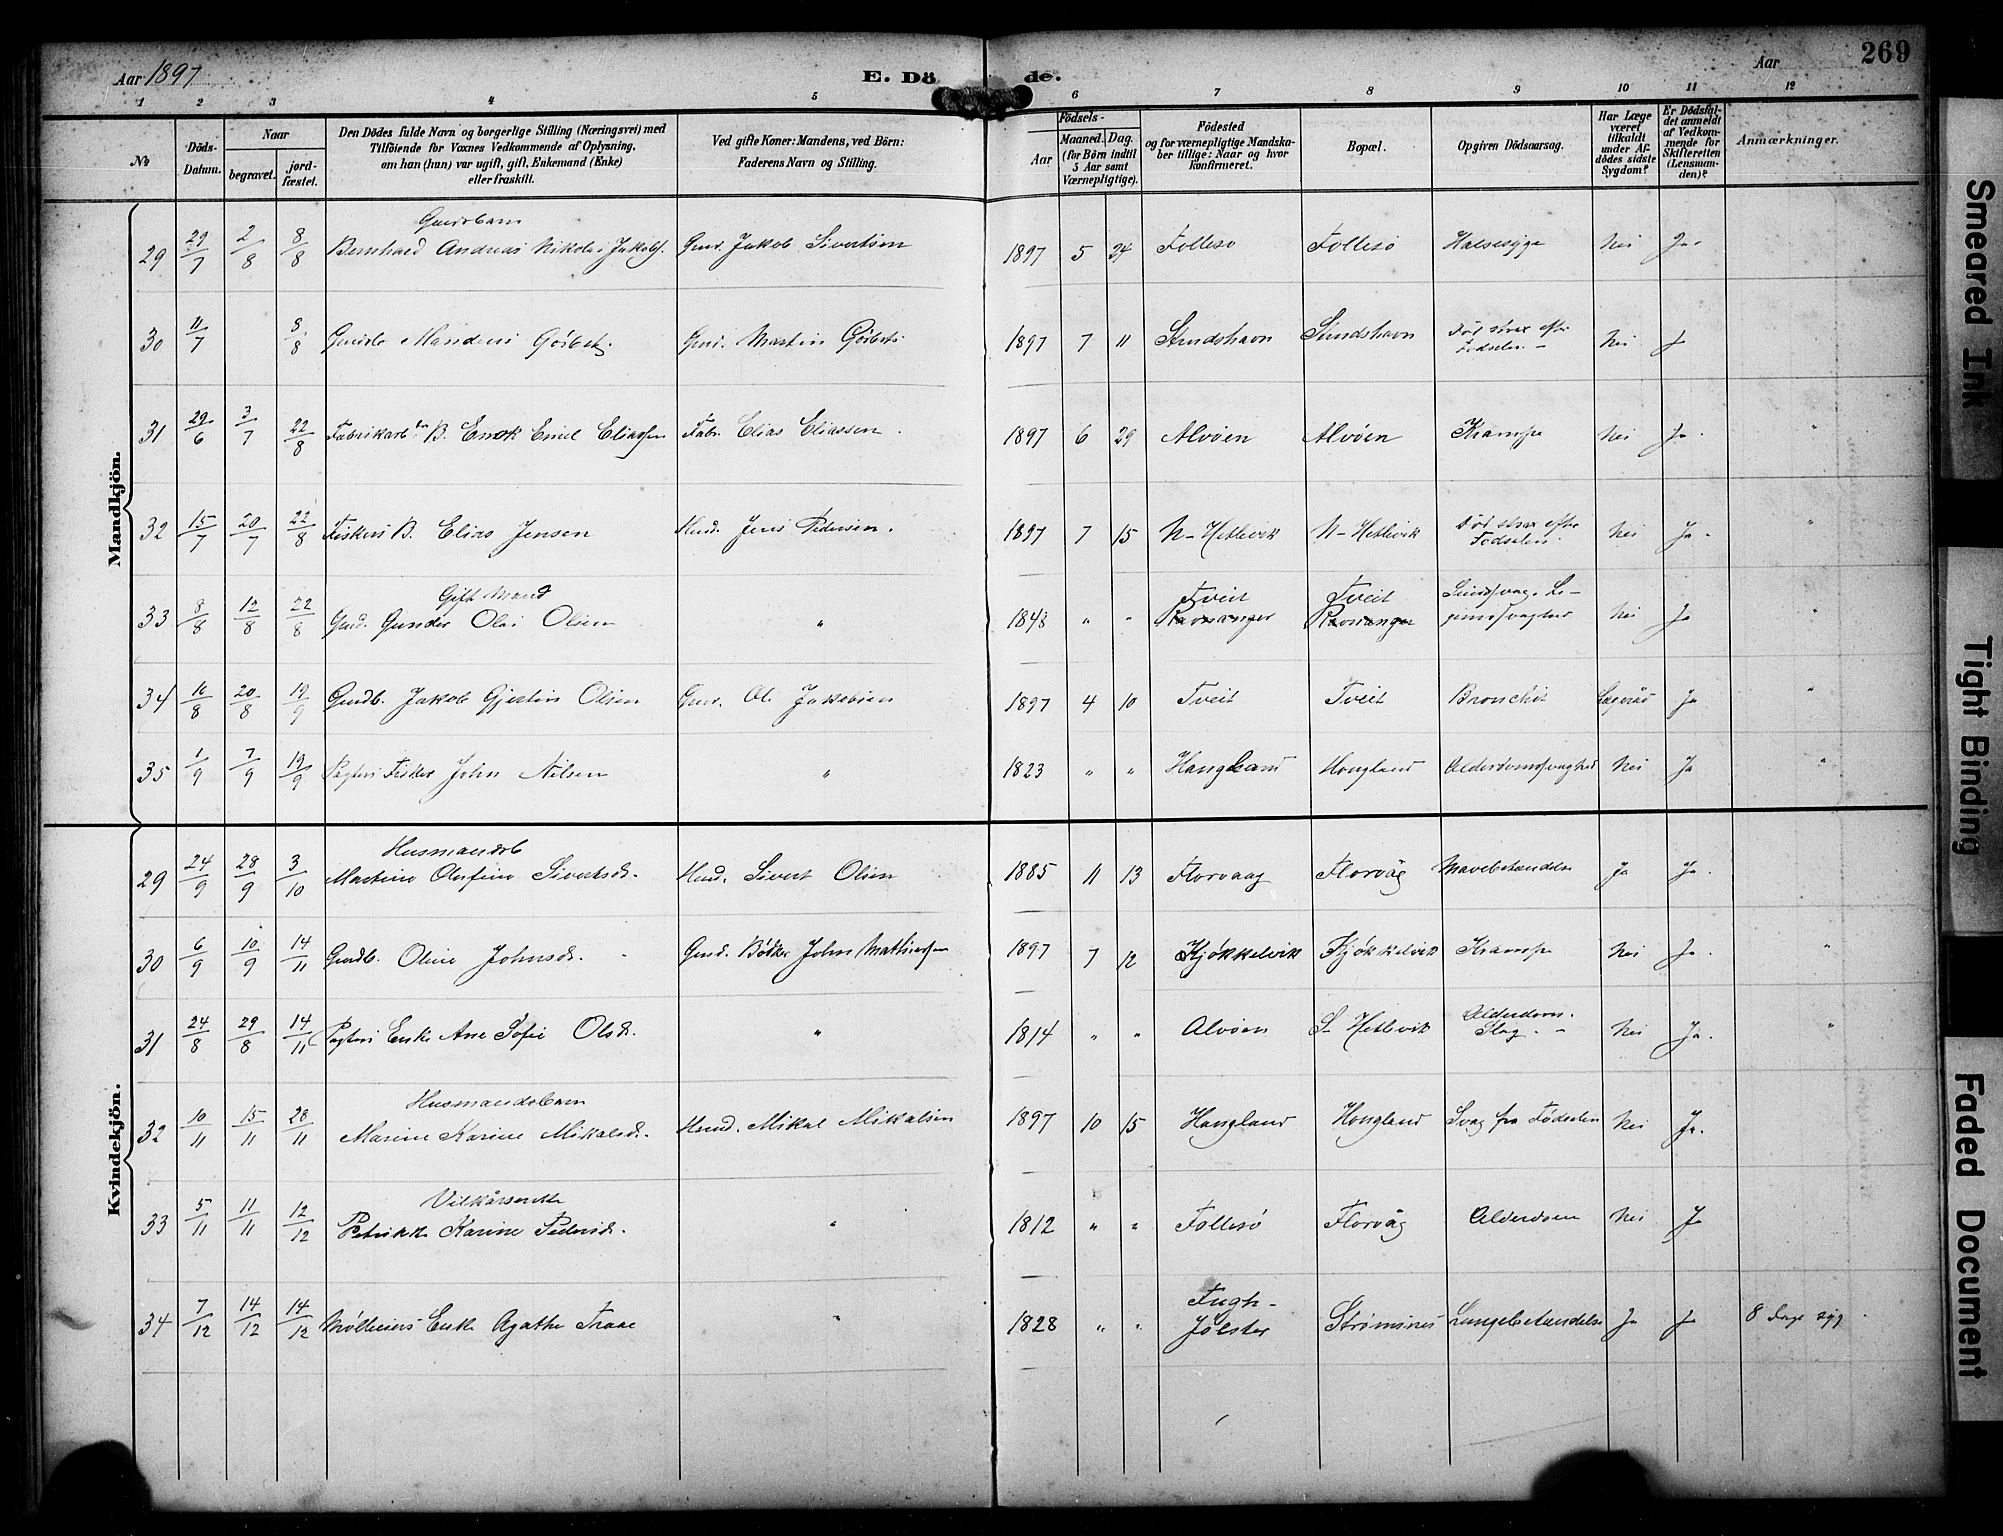 Aar 1897
E. Dö
de.
Aar
269
1 2 3 4 5 6 7 8 9 10 11 12
No
Döds-
Datum.
Naar
begravet.
jord-
fæstet.
Den Dödes fulde Navn og borgerlige Stilling (Næringsvei) med
Tilföiende for Voxnes Vedkommende af Oplysning,
om han (hun) var ugift, gift, Enkemand (Enke)
eller fraskilt.
Ved gifte Koner: Mandens, ved Börn:
Faderens Navn og Stilling.
Födsels-
Aar
Maaned. Dag.
(for Börn indtil
5 Aar samt
Værnepligtige).
Födested
og for værnepligtige Mandska-
ber tillige: Naar og hvor
konfirmeret.
Bopæl.
Opgiven Dödsaarsag.
Har Læge
været
tilkaldt
under Af-
dödes sidste
Sygdom?
Er Dödsfal-
det anmeldt
af Vedkom-
mende for
Skifteretten
(Lensman-
den)?
Anmærkninger.
Mandkjön.
Gmdsbarn
29 29/7 2/8 8/8 Bernhard Andreas Nikolai Jakobs. Gmd. Jakob Sivertsen 1897 5 24 Follesø Follesø Halsesyge Nei Ja
30 11/7 8/8 Gmdb. Gmd. Martin 1897 7 11 Strudshavn Strudshavn Død strax efter
Fødselen - Nei J
31 29/6 3/7 22/8 Fabrikarb. B. Enok Emil Eliassen Fabr. Elias Eliassen. 1897 6 29 Alvøen Alvøen Krampe Nei Ja. "
32 15/7 20/7 22/8 Fiskers B. Elias Jensen Jens Pedersen. 1897 7 15 N-Hetlevik N-Hetlevik Død strax efter
Fødselen. Nei Ja. "
Gift Mand
33 8/8 12/8 22/8 Gmd. Gunder Olai Olsen " 1848 " " Tveit
Ravnanger Tveit
Ravnanger Nei Ja
34 16/8 20/8 19/9 Gmdb. Jakob Gjertin Olsen Gmd. Ole Jakobsen 1897 4 10 Tveit Tveit Bronchit Ja "
35 1/9 7/9 19/9 Fisker John Nilsen " 1823 " " Haugland Haugland Alderdomssvaghed Nei Ja "
Kvindekjön.
Husmandsb
29 24/9 28/9 3/10 Martine Olufine Sivertsdr. Hmd. Sivert Olsen 1885 11 13 Florvaag Florvåg Mavebetændelse Ja Ja.
30 6/9 10/9 14/11 Gmdb. Oline Johnsdr. Gmd. Bødker John Mathiassen 1897 7 12 Kjøkkelvik Kjøkkelvik Krampe Nei Ja. "
31 24/8 29/8 14/11 Enke Ane Sofie Olsdr. " 1814 " " Alvøen S-Hetlevik Alderdom.
Slag. - Nei Ja. "
Husmandsbarn
32 10/11 15/11 28/11 Marine Karine Mikalsdr. Hmd. Mikal Mikalsen 1897 10 15 Haugland Haugland Svag fra Fødselen Nei Ja.
Vilkårsenke
33 5/11 11/11 12/12 Petrikke Karine Pedersdr. " 1812 " " Follesø Florvåg Alderdom Nei Ja
34 7/12 14/12 14/12 Enke Agathe " 1828 " "
Jølster Strømsnes Lungebetændelse Ja Ja 8 Dage syg
Smeared Ink
Tight Binding
Faded Document